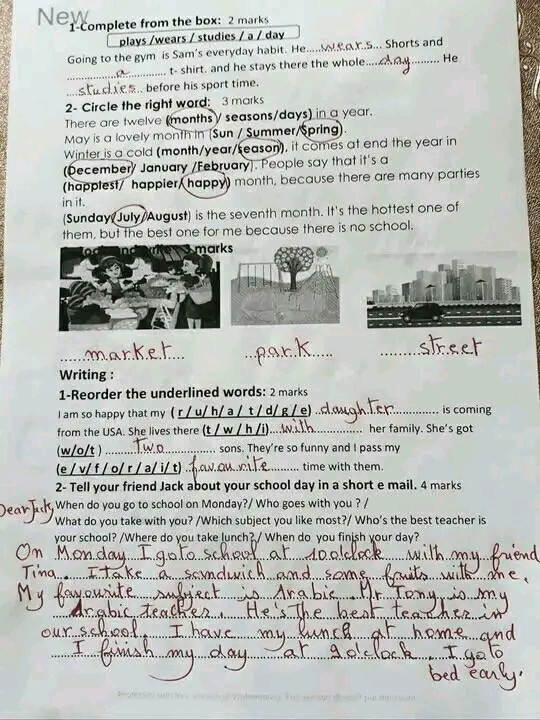 New
1-Complete from the box: 2 marks
plays /wears / studies / a / day
Going to the gym is Sam's everyday habit. He....wears... Shorts and
............a............ t- shirt. and he stays there the whole....day......... He
....studies.. before his sport time.
2- Circle the right word: 3 marks
There are twelve (months/ seasons/days) in a year.
May is a lovely month in (Sun / Summer/Spring).
Winter is a cold (month/year/season), it comes at end the year in
(December/ January /February). People say that it's a
(happiest/ happier/ happy) month, because there are many parties
in it.
(Sunday/July/August) is the seventh month. It's the hottest one of
them, but the best one for me because there is no school.
3 marks
.....market...
...park.....
.........street
Writing :
1-Reorder the underlined words: 2 marks
I am so happy that my ( r / u/ h/ a / t / d/ g / e) ..daughter............. is coming
from the USA. She lives there (t / w / h / i)....with............ her family. She's got
(w/o/t ) .........two............... sons. They're so funny and I pass my
(e / v/ f / o / r / a / i / t) .favourite........... time with them.
2- Tell your friend Jack about your school day in a short e mail. 4 marks
When do you go to school on Monday?/ Who goes with you ? /
Dear
What do you take with you? /Which subject you like most?/ Who's the best teacher is
your school? /Where do you take lunch?/ When do you finish your day?
On Monday I go to school at 10 o'clock with my friend
Tina. I take a sandwich and some fruits with me.
My favourite subject is Arabic. Mr Tony is my
Arabic teacher. He's the best teacher in
our school. I have my lunch at home and
I finish my day at 9 o'clock. I go to
bed early.